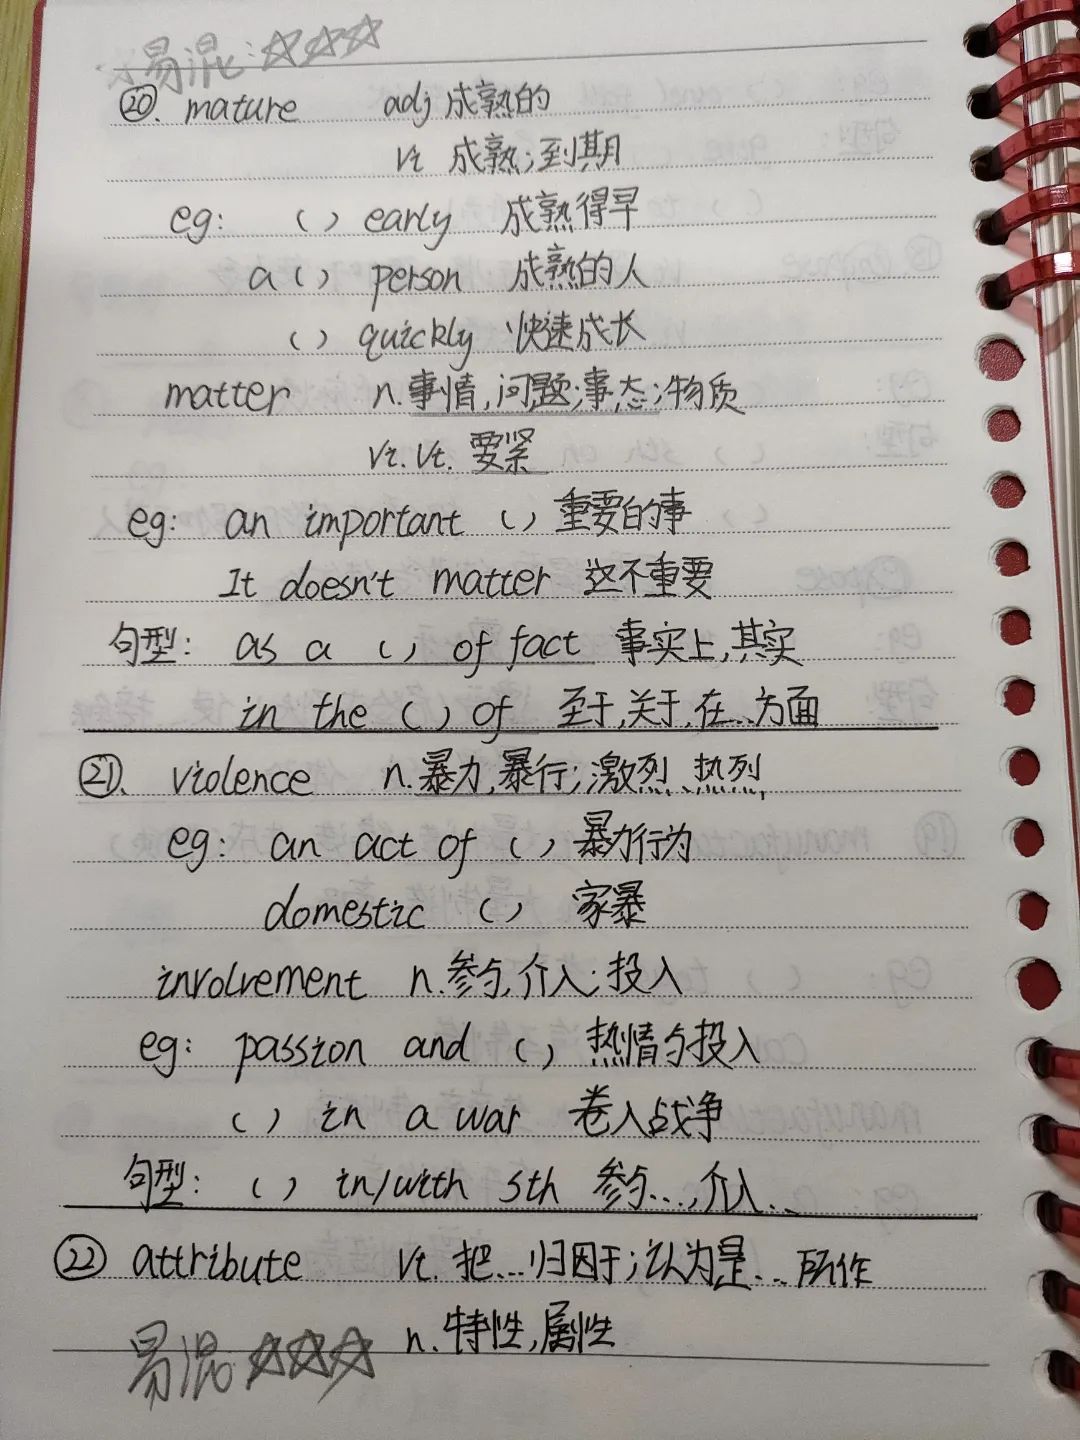 易混:☆☆☆
⑳. mature adj 成熟的
vi 成熟;到期
eg: ( ) early 成熟得早
a ( ) person 成熟的人
( ) quickly 快速成长
matter n.事情,问题;事态;物质
vi.vt. 要紧
eg: an important ( ) 重要的事
It doesn't matter 这不重要
句型: as a ( ) of fact 事实上,其实
in the ( ) of 至于,关于,在...方面
㉑. violence n.暴力,暴行;激烈、热烈
eg: an act of ( ) 暴力行为
domestic ( ) 家暴
involvement n.参与,介入;投入
eg: passion and ( ) 热情与投入
( ) in a war 卷入战争
句型: ( ) in/with sth 参与...,介入...
㉒ attribute vt. 把...归因于;认为是...所作
n.特性,属性
易混 ☆☆☆